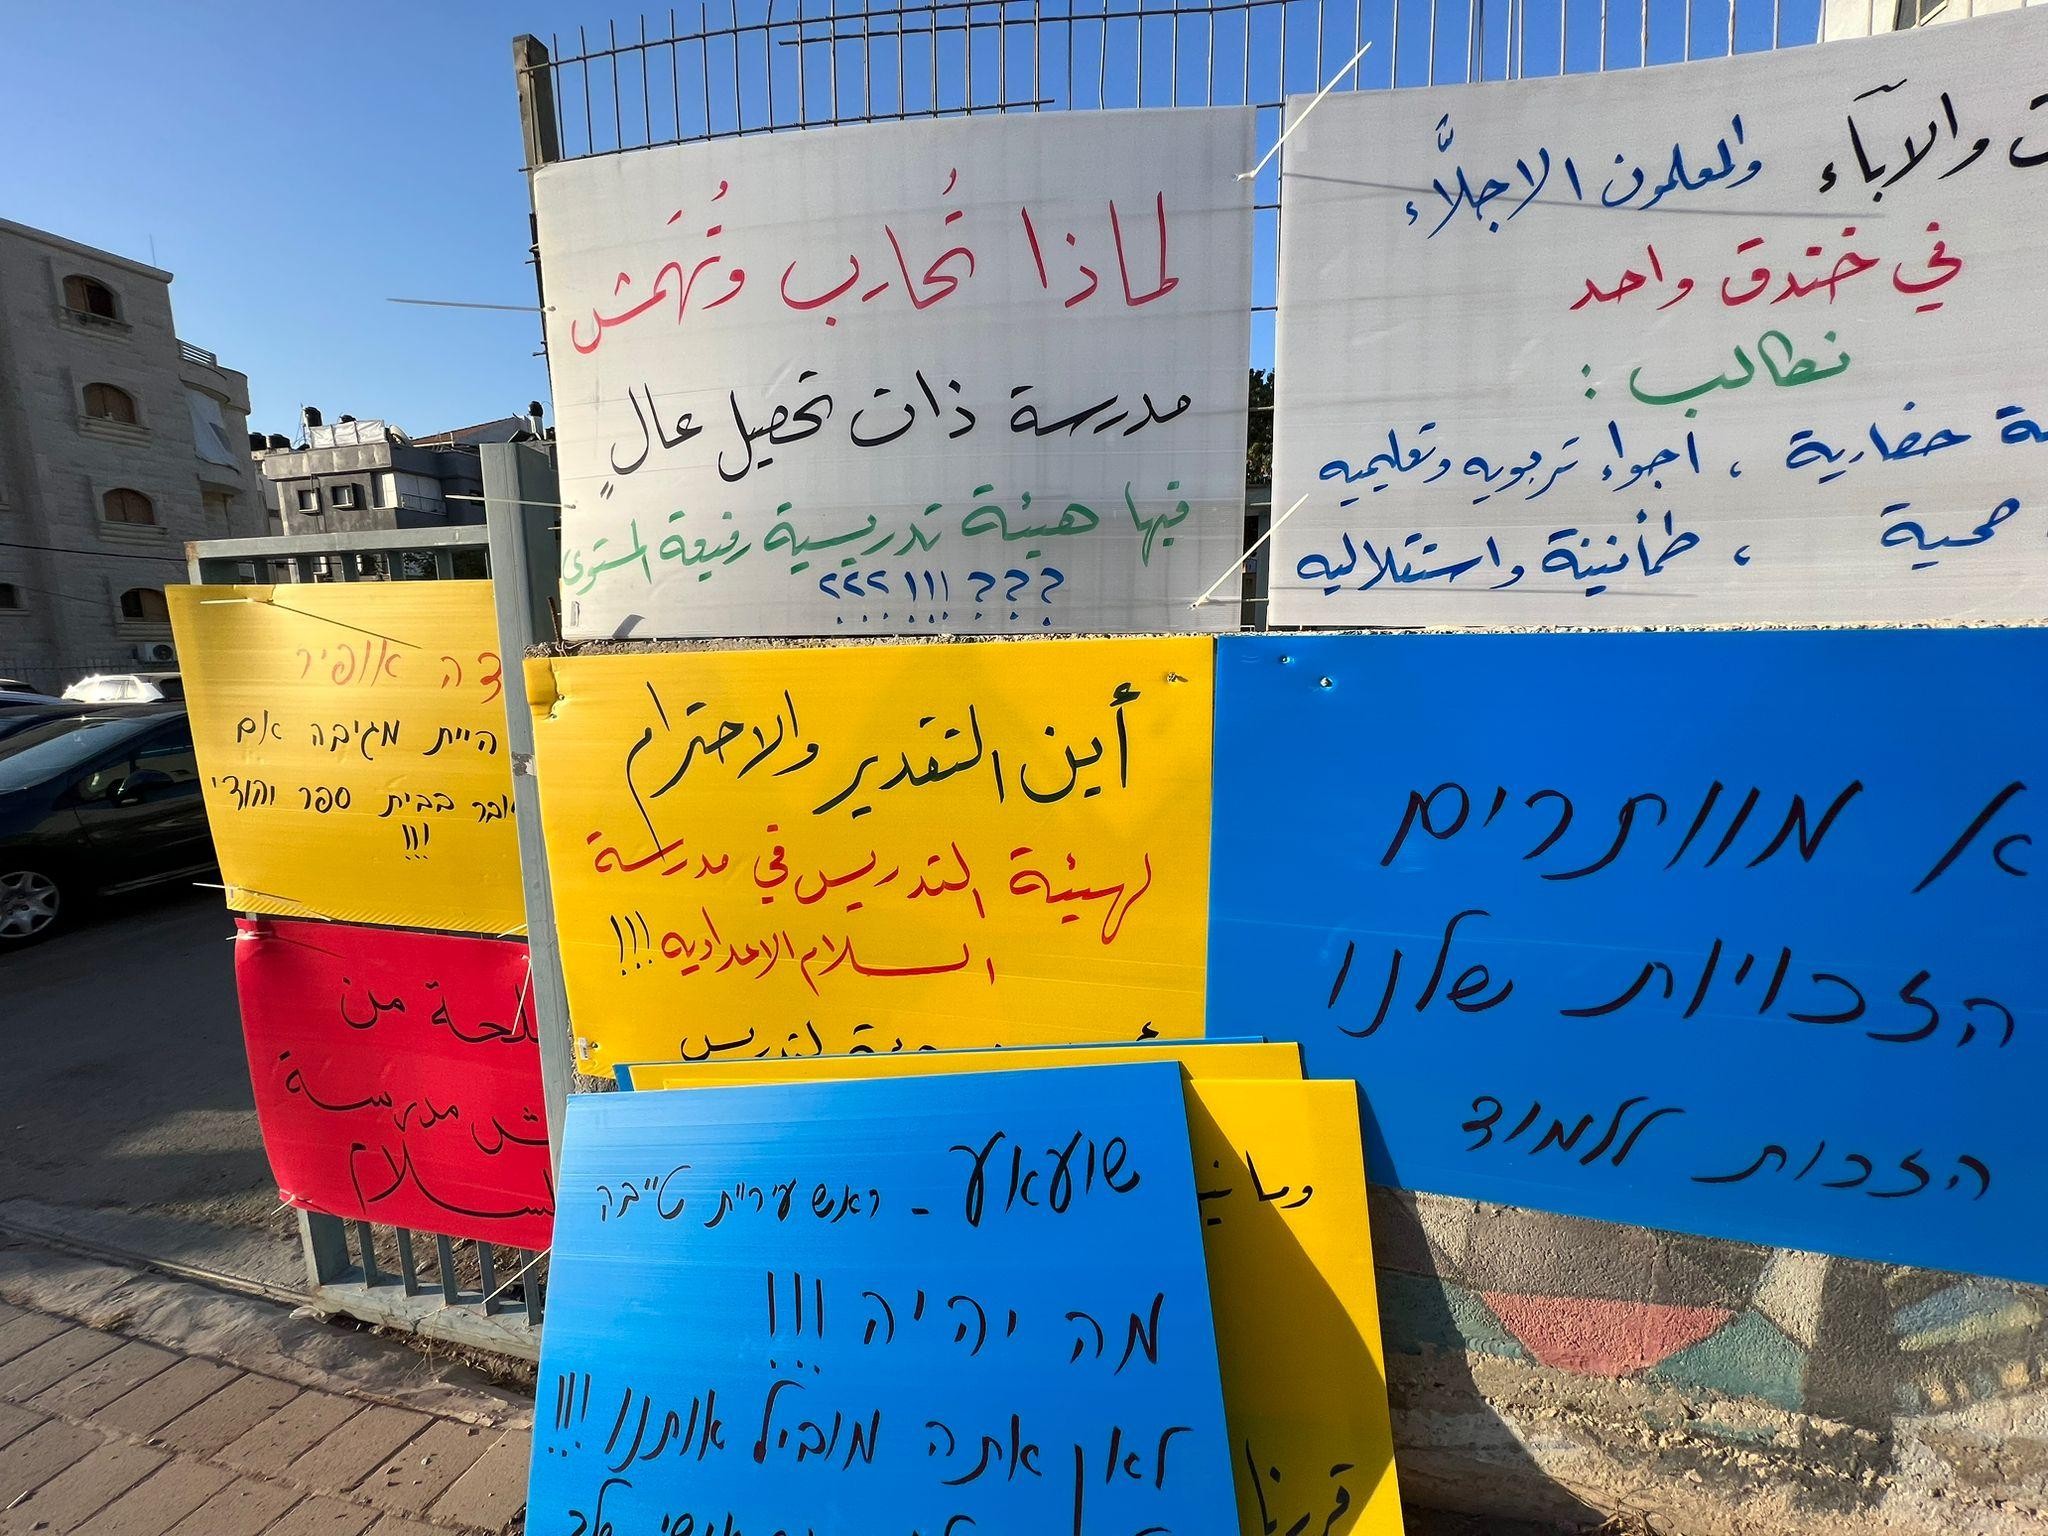 لماذا تُحارب وتُهَمش
مدرسة ذات تحصيل عالٍ
فيها هيئة تدريسية رفيعة المستوى
؟؟؟!!!؟؟؟
والآبآء والمعلمون الاجلاَّء
في خندق واحد
نطالب:
حضارية، اجواء تربويه وتعليميه
صحية، طمأنينة واستقلاليه
אופיר
היית מגיבה אם
בבית ספר יהודי
!!!
أين التقدير والاحترام
لهيئة التدريس في مدرسة
السلام الاعداديه!!!
لتدريس
מוותרים
הזכויות שלנו
הזכות ללמוד
من
مدرسة
שועאע - ראש עיריית טייבה
מה יהיה !!!
לאן אתה מוביל אותנו !!!